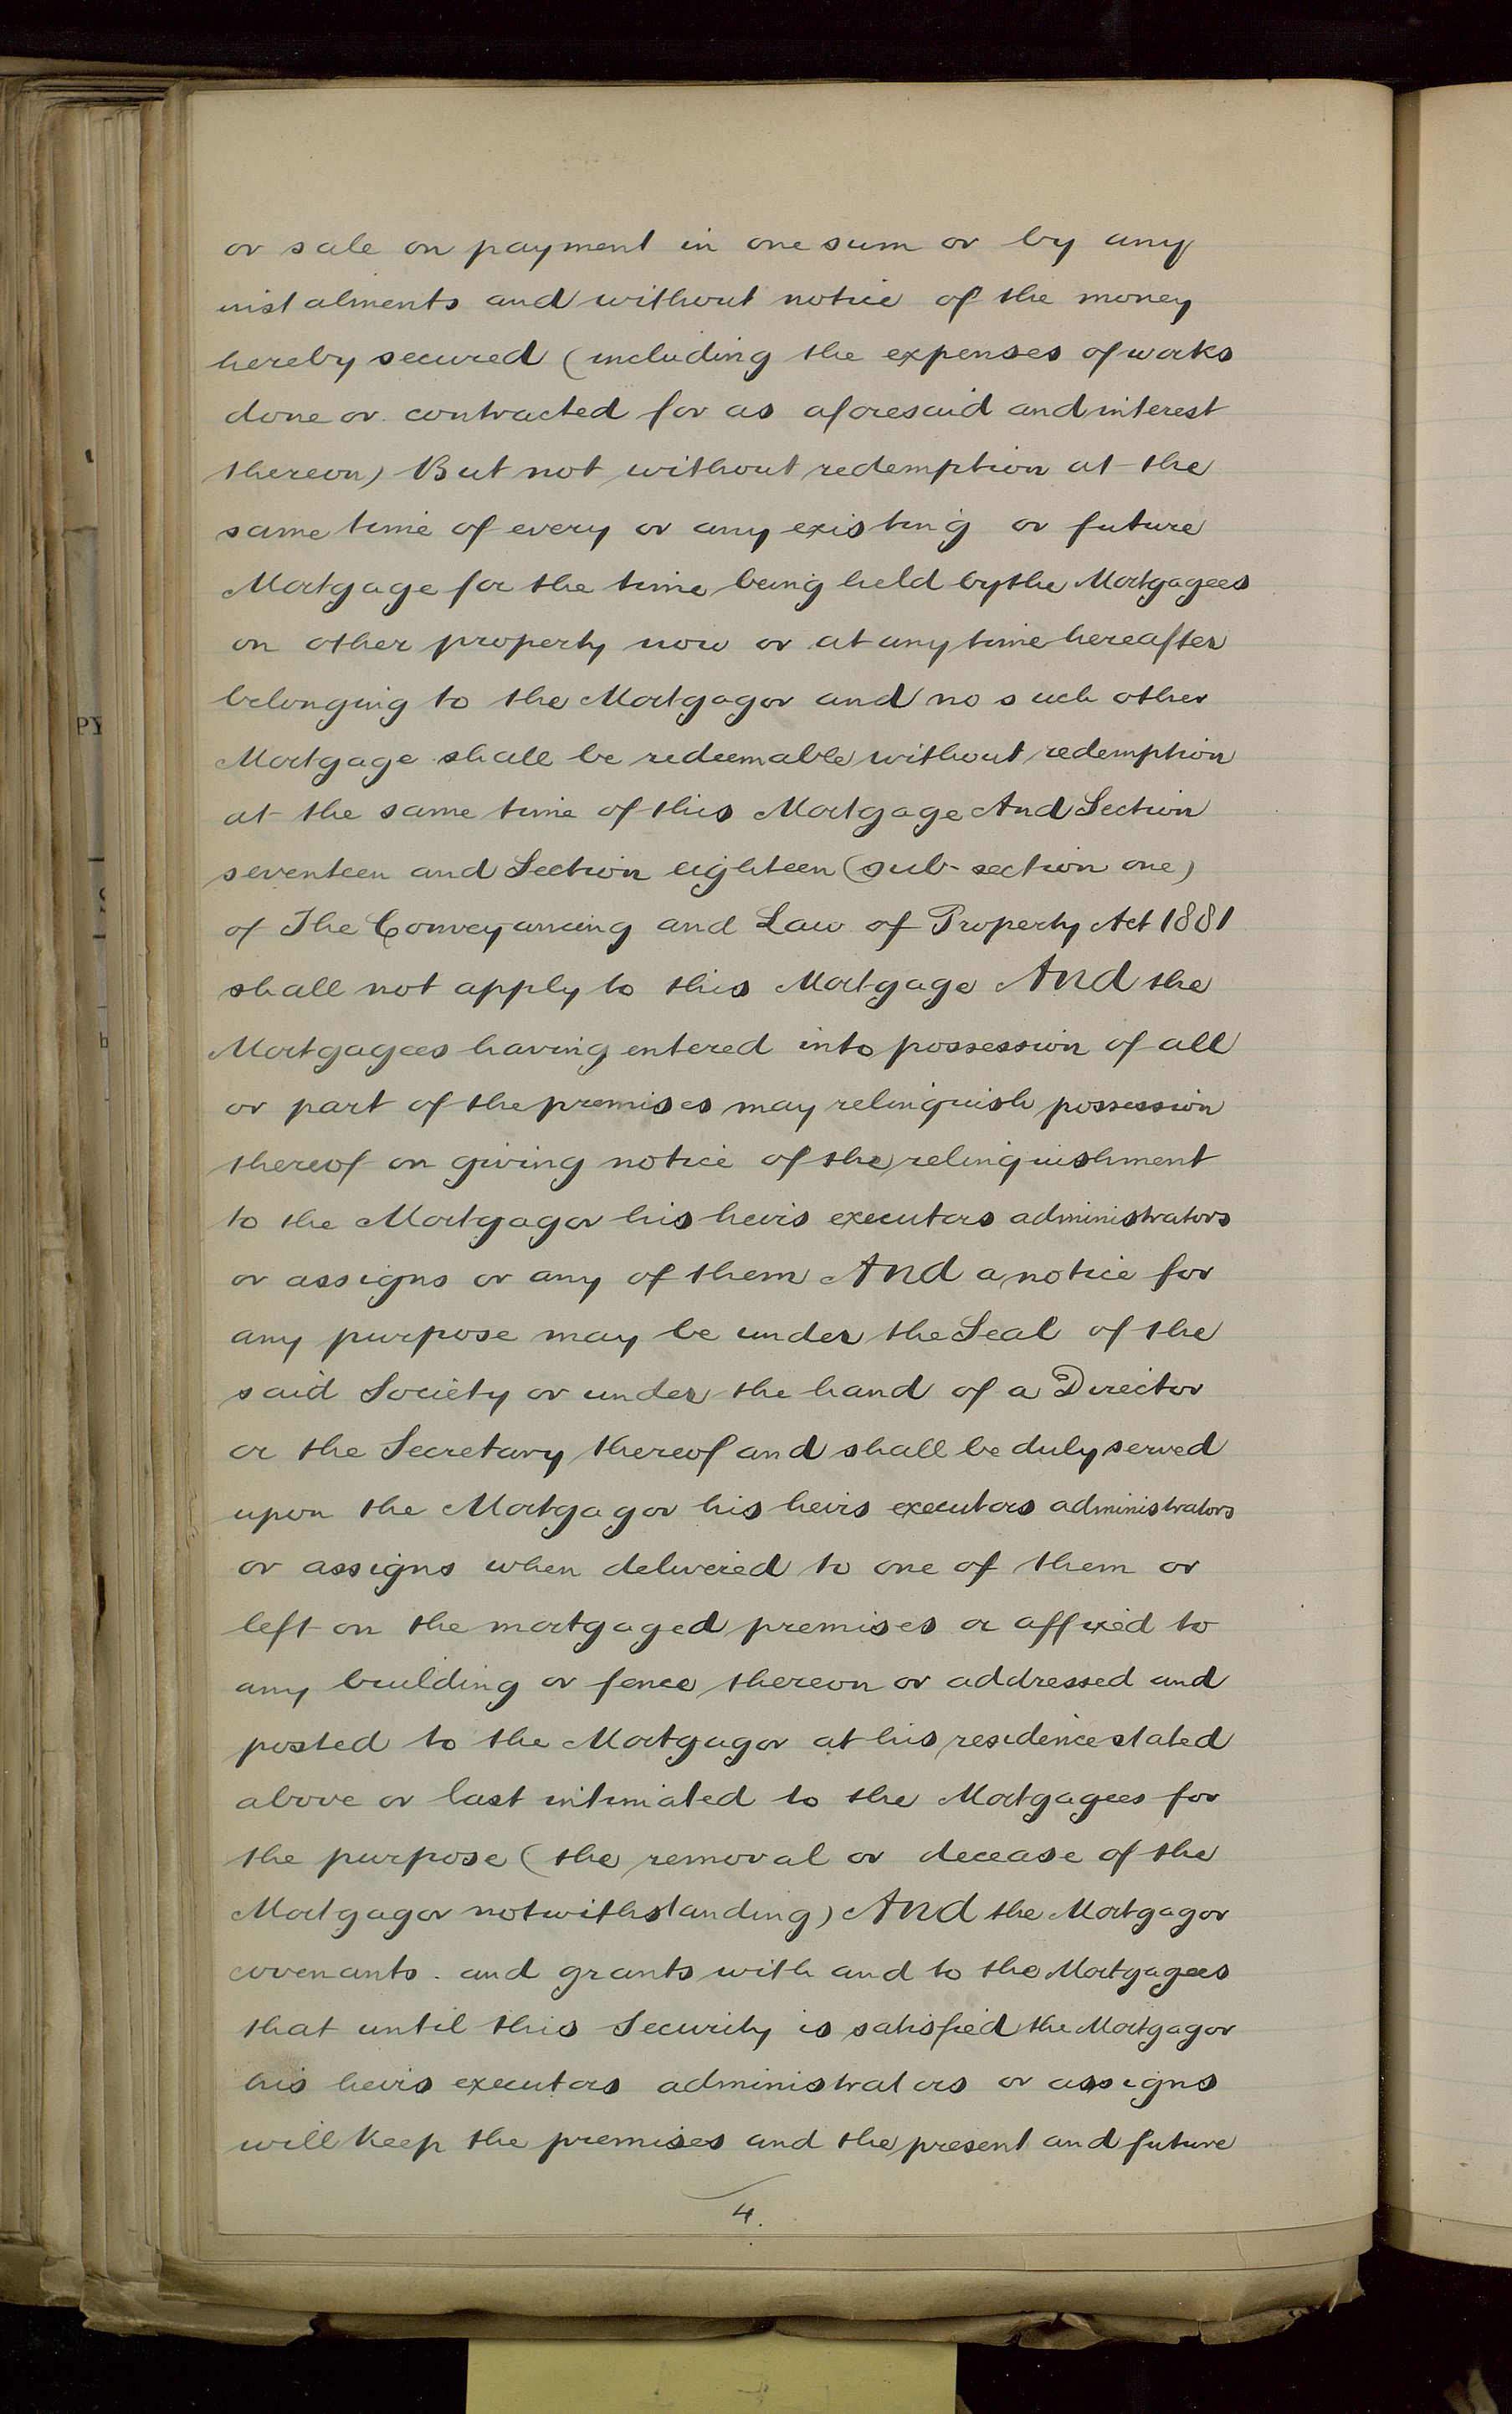 or sale on payment in one sum or by any
instalments and without notice of the money
hereby secured (including the expenses of works
done or contracted for as aforesaid and interest
thereon) But not without redemption at the
same time of every or any existing or future
Mortgage for the time being held by the Mortgagees
on other property now or at any time hereafter
belonging to the Mortgagor and no such other
Mortgage shall be redeemable without redemption
at the same time of this Mortgage And Section
seventeen and Section eighteen (sub-section one)
of The Conveyancing and Law of Property Act 1881
shall not apply to this Mortgage And the
Mortgagees having entered into possession of all
or part of the premises may relinquish possession
thereof on giving notice of the relinquishment
to the Mortgagor his heirs executors administrators
or assigns or any of them And a notice for
any purpose may be under the Seal of the
said Society or under the hand of a Director
or the Secretary thereof and shall be duly served
upon the Mortgagor his heirs executors administrators
or assigns when delivered to one of them or
left on the mortgaged premises or affixed to
any building or fence thereon or addressed and
posted to the Mortgagor at his residence stated
above or last intimated to the Mortgagees for
the purpose (the removal or decease of the
Mortgagor notwithstanding) And the Mortgagor
covenants. and grants with and to the Mortgagees
that until this Security is satisfied the Mortgagor
his heirs executors administrators or assigns
will keep the premises and the present and future
4.
PY